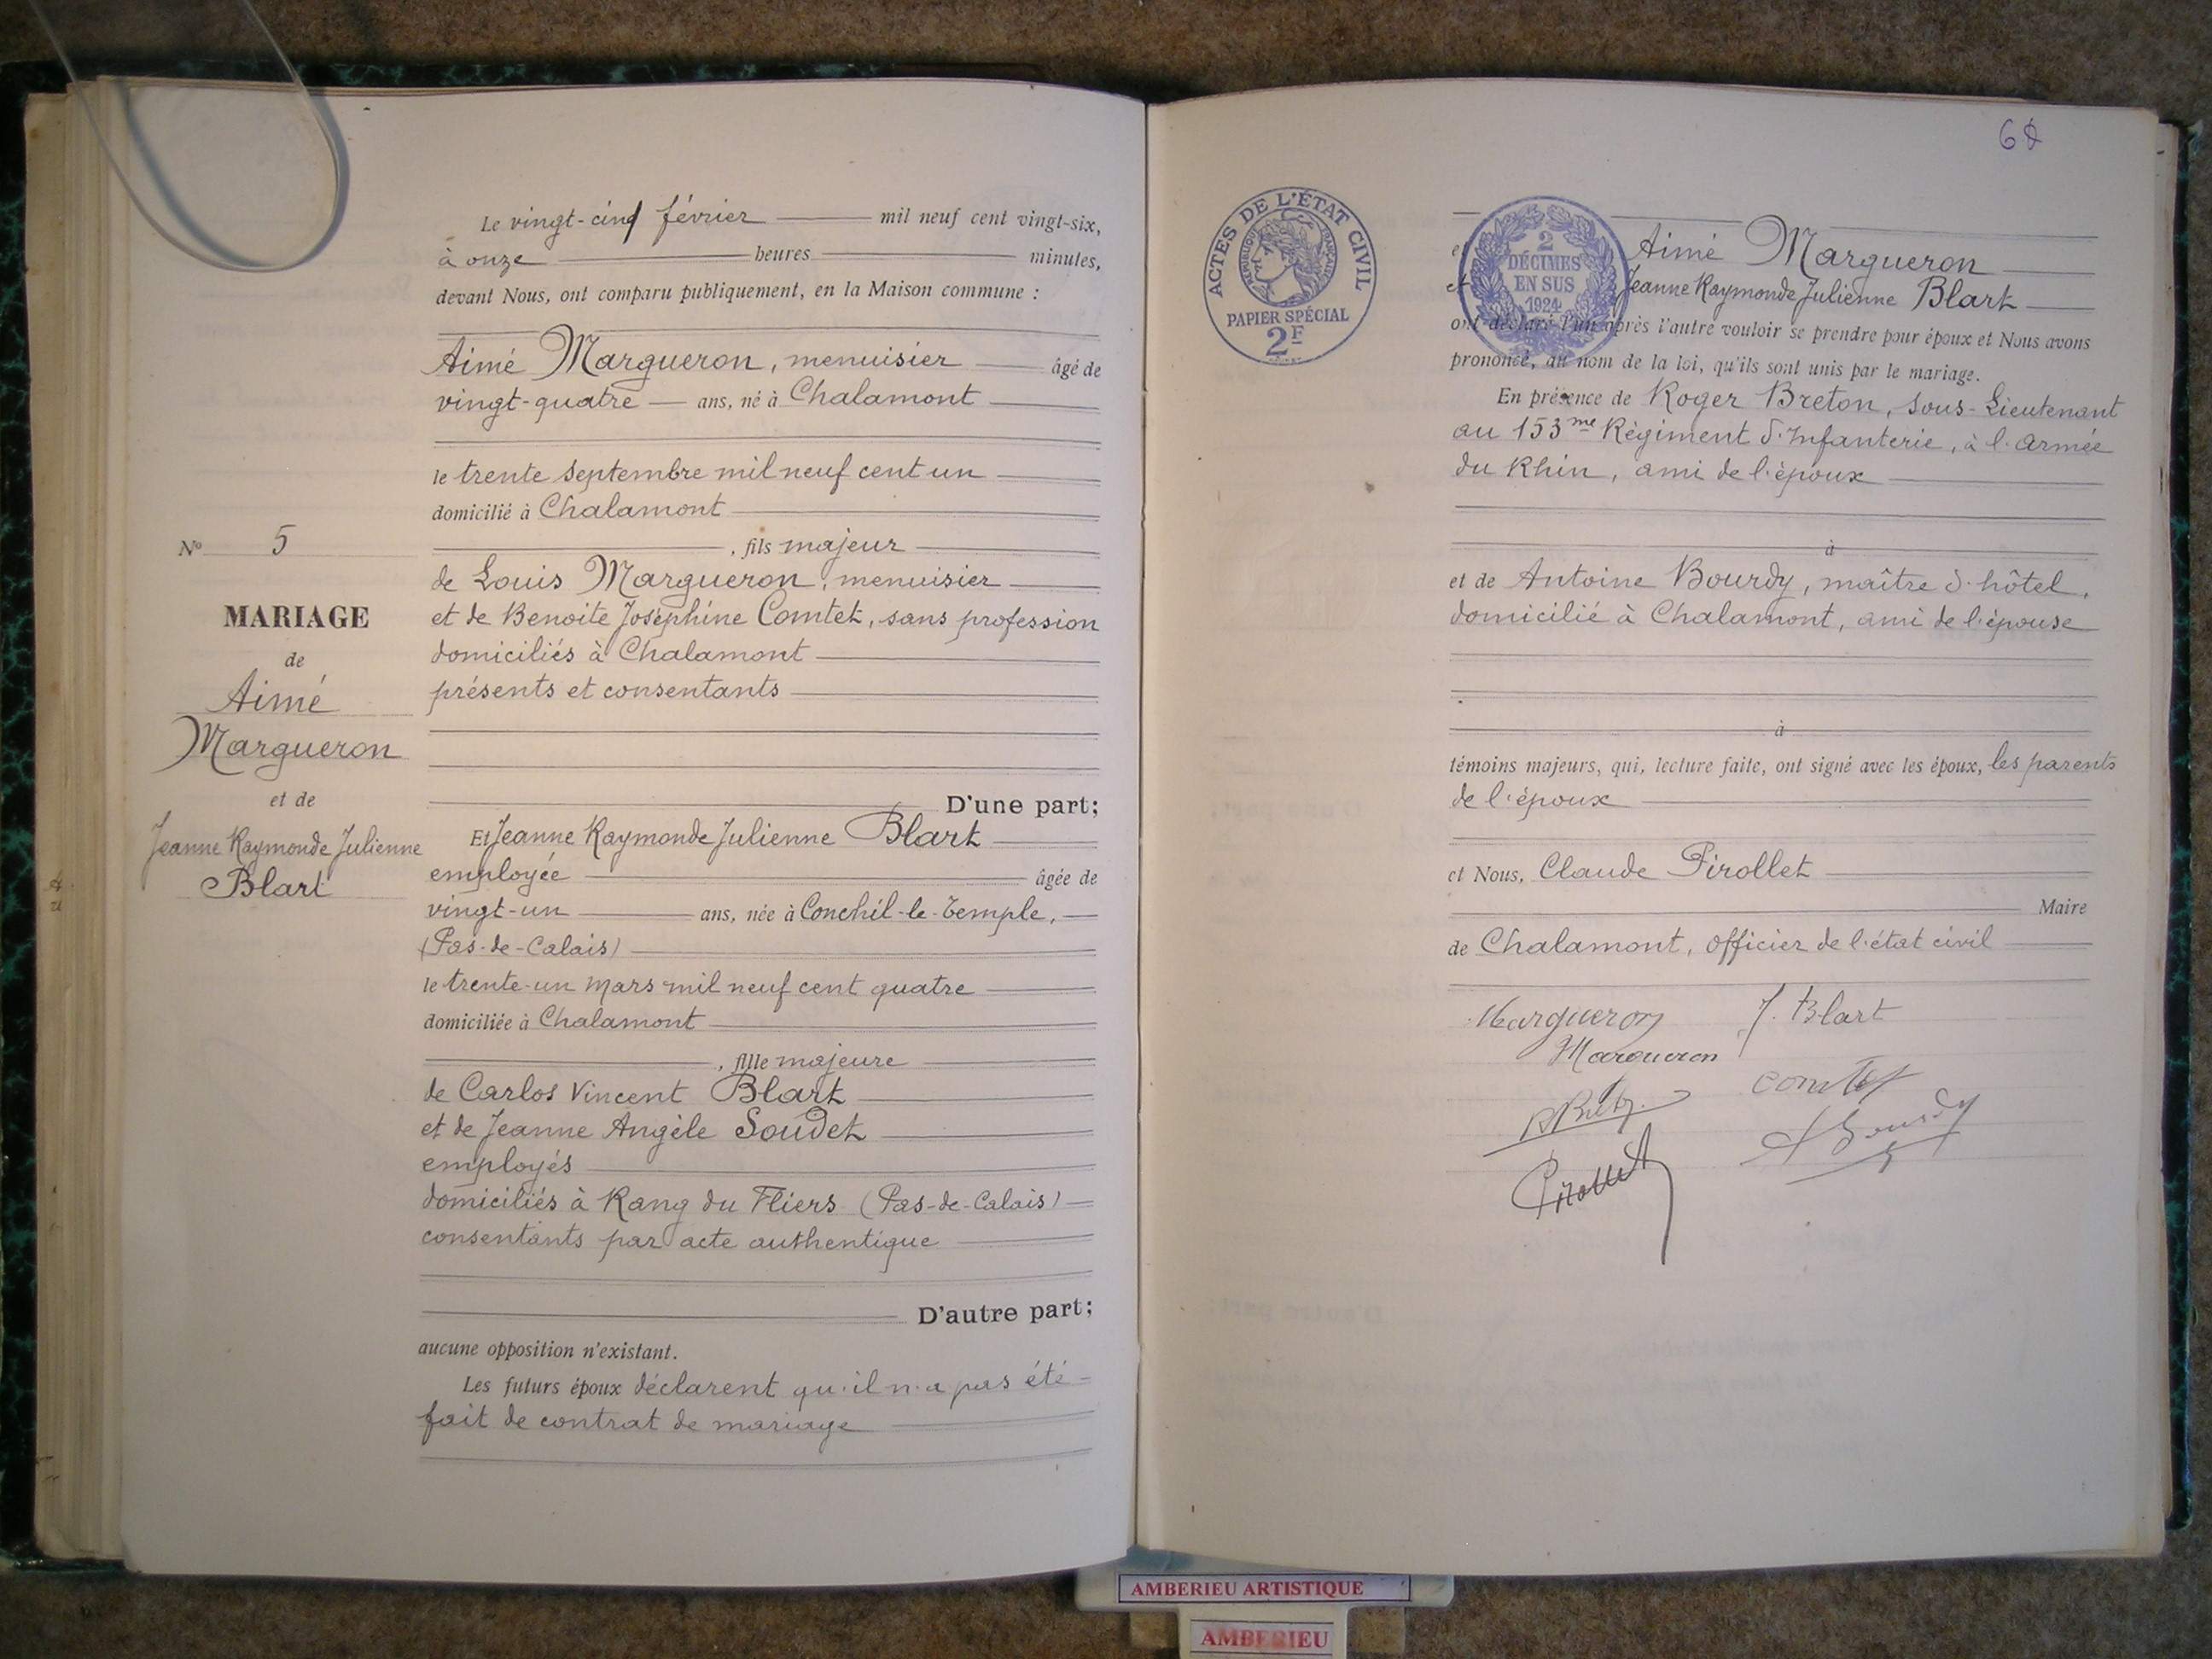 N° 5
MARIAGE
de
Aimé
Margueron
et de
Jeanne Raymonde Julienne
Blart
Le vingt-cinq février mil neuf cent vingt-six,
à onze heures minutes,
devant Nous, ont comparu publiquement, en la Maison commune :
Aimé Margueron, menuisier âgé de
vingt-quatre ans, né à Chalamont
le trente septembre mil neuf cent un
domicilié à Chalamont
, fils majeur
de Louis Margueron, menuisier
et de Benoite Joséphine Comtet, sans profession
domiciliés à Chalamont
présents et consentants
D'une part;
Et Jeanne Raymonde Julienne Blart
employée âgée de
vingt-un ans, née à Conchil-le-Temple,
(Pas-de-Calais)
le trente-un mars mil neuf cent quatre
domiciliée à Chalamont
, fille majeure
de Carlos Vincent Blart
et de Jeanne Angèle Soudet
employés
domiciliés à Rang du Fliers (Pas-de-Calais)
consentants par acte authentique
D'autre part;
aucune opposition n'existant.
Les futurs époux déclarent qu'il n'a pas été
fait de contrat de mariage
ACTES DE L'ÉTAT CIVIL
RÉPUBLIQUE FRANÇAISE
PAPIER SPÉCIAL
2F
2
DÉCIMES
EN SUS
1924
et Aimé Margueron
et Jeanne Raymonde Julienne Blart
ont déclaré l'un après l'autre vouloir se prendre pour époux et Nous avons
prononcé, au nom de la loi, qu'ils sont unis par le mariage.
En présence de Roger Breton, sous-Lieutenant
au 153me Régiment d'Infanterie, à l'armée
du Rhin, ami de l'époux
à
et de Antoine Bourdy, maître d'hôtel,
domicilié à Chalamont, ami de l'épouse
à
témoins majeurs, qui, lecture faite, ont signé avec les époux, les parents
de l'époux
et Nous, Claude Pirollet
Maire
de Chalamont, officier de l'état civil
Margueron J. Blart
Margueron
Comtet
ABourdy
Pirollet
AMBERIEU ARTISTIQUE
AMBERIEU